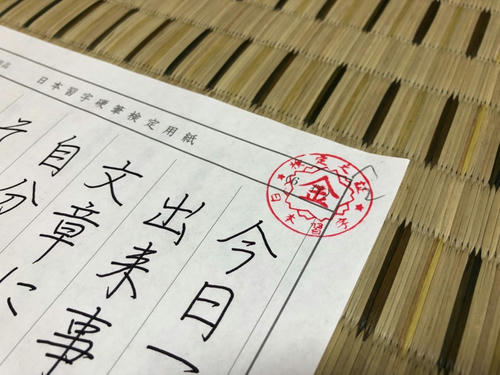 日本習字硬筆検定用紙
今日一
出来事
文章に
自分
そ
金
日本習字